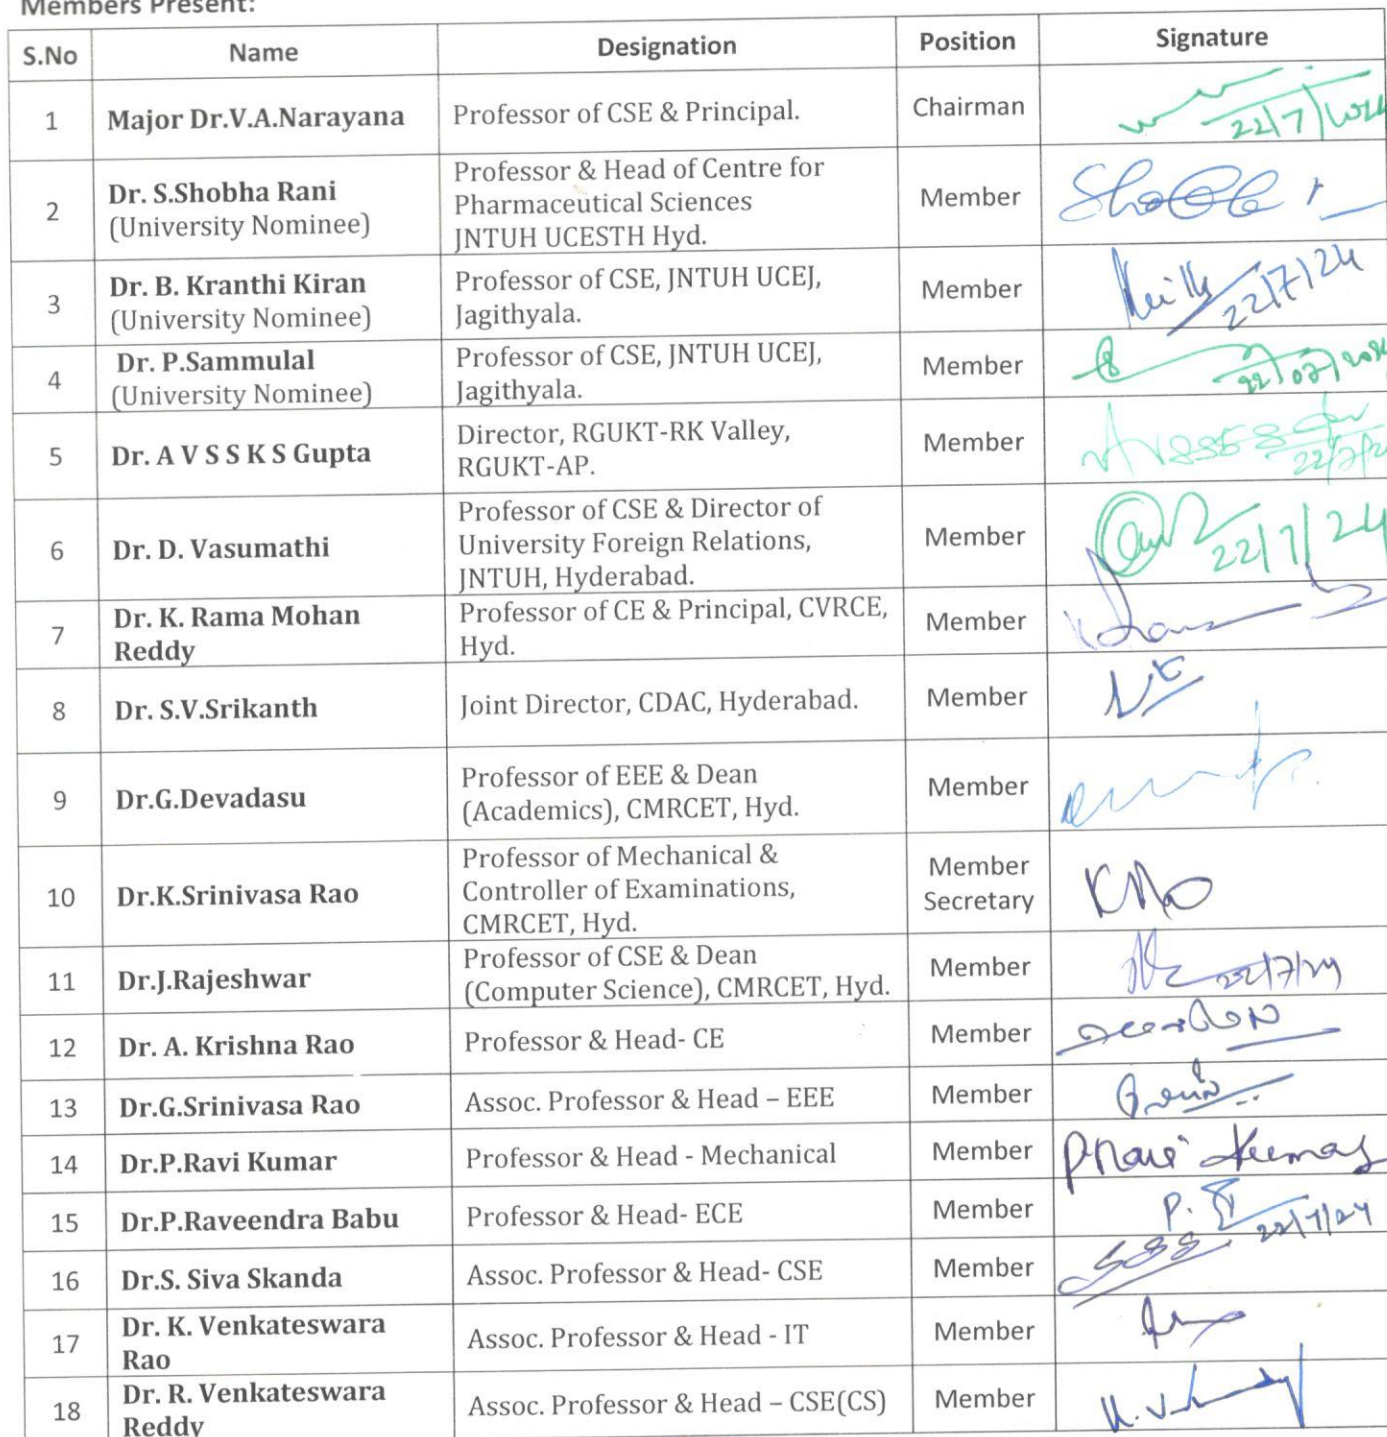 Members Present:
S.No Name Designation Position Signature
1 Major Dr.V.A.Narayana Professor of CSE & Principal. Chairman 22/7/2024
2 Dr. S.Shobha Rani
(University Nominee) Professor & Head of Centre for
Pharmaceutical Sciences
JNTUH UCESTH Hyd. Member
3 Dr. B. Kranthi Kiran
(University Nominee) Professor of CSE, JNTUH UCEJ,
Jagithyala. Member 22/7/24
4 Dr. P.Sammulal
(University Nominee) Professor of CSE, JNTUH UCEJ,
Jagithyala. Member 22/07/2024
5 Dr. A V S S K S Gupta Director, RGUKT-RK Valley,
RGUKT-AP. Member
6 Dr. D. Vasumathi Professor of CSE & Director of
University Foreign Relations,
JNTUH, Hyderabad. Member 22/7/24
7 Dr. K. Rama Mohan
Reddy Professor of CE & Principal, CVRCE,
Hyd. Member
8 Dr. S.V.Srikanth Joint Director, CDAC, Hyderabad. Member
9 Dr.G.Devadasu Professor of EEE & Dean
(Academics), CMRCET, Hyd. Member
10 Dr.K.Srinivasa Rao Professor of Mechanical &
Controller of Examinations,
CMRCET, Hyd. Member
Secretary
11 Dr.J.Rajeshwar Professor of CSE & Dean
(Computer Science), CMRCET, Hyd. Member 22/7/24
12 Dr. A. Krishna Rao Professor & Head- CE Member
13 Dr.G.Srinivasa Rao Assoc. Professor & Head – EEE Member
14 Dr.P.Ravi Kumar Professor & Head - Mechanical Member PRavi Kumar
15 Dr.P.Raveendra Babu Professor & Head- ECE Member 22/7/24
16 Dr.S. Siva Skanda Assoc. Professor & Head- CSE Member
17 Dr. K. Venkateswara
Rao Assoc. Professor & Head - IT Member
18 Dr. R. Venkateswara
Reddy Assoc. Professor & Head – CSE(CS) Member